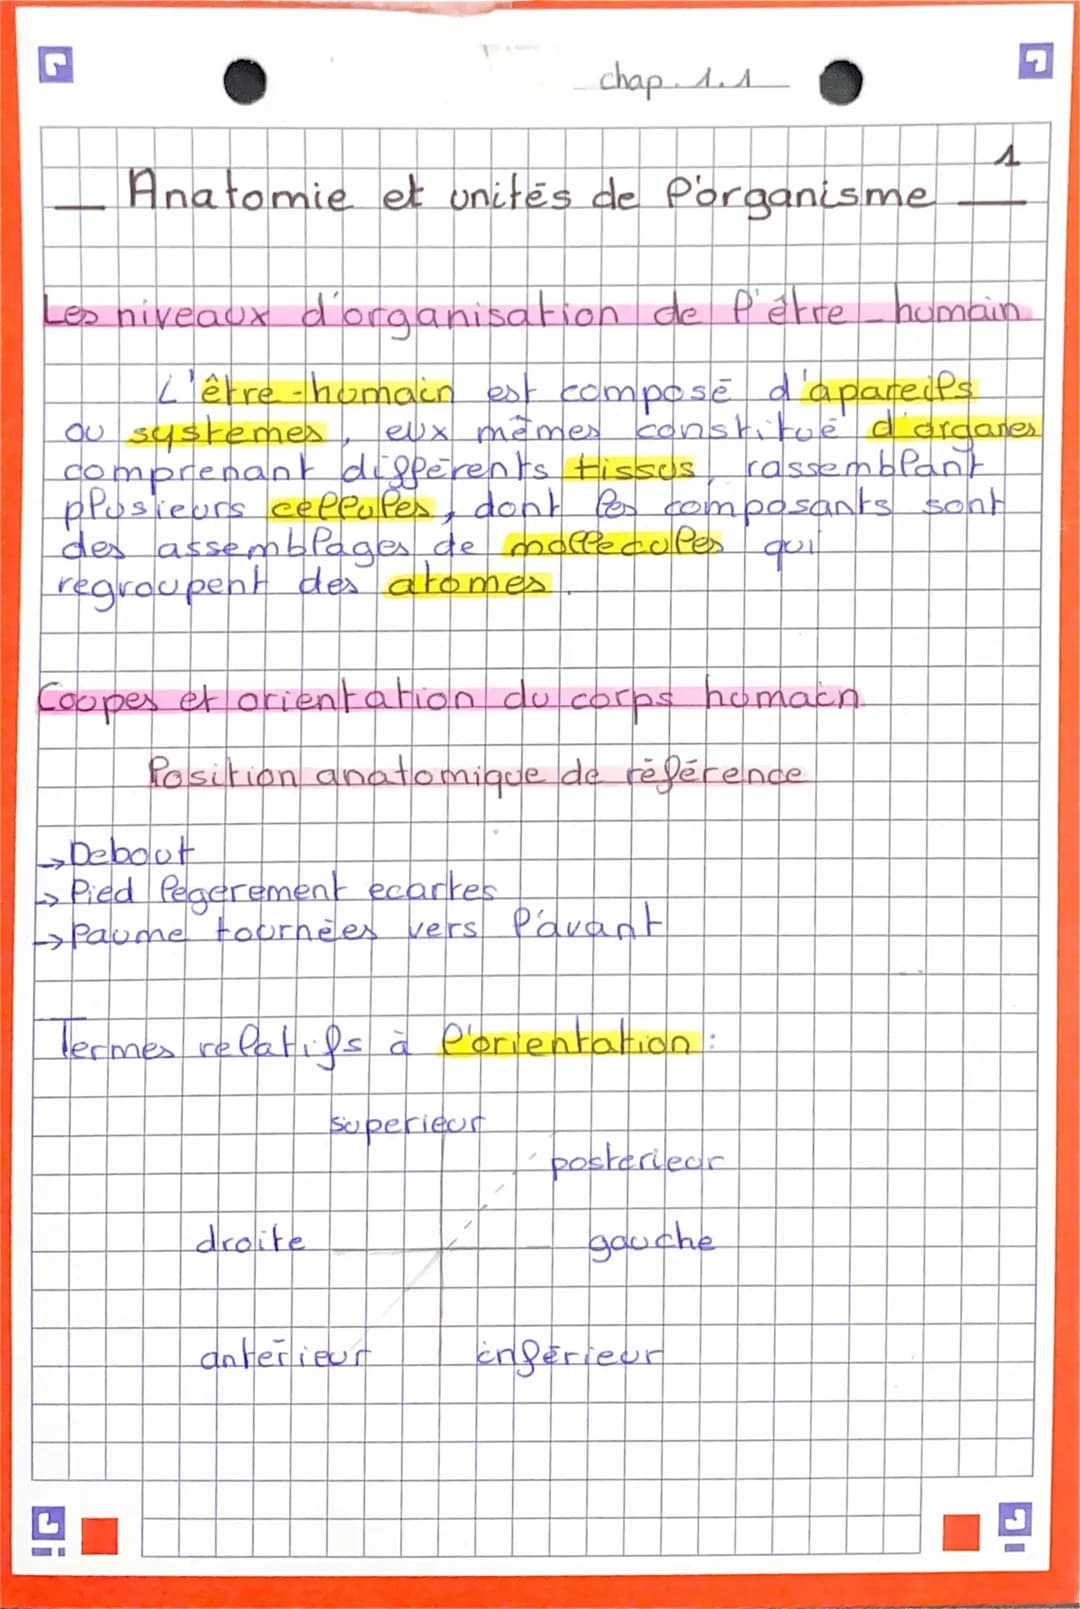 chap. 1.1
1
Anatomie et unités de l'organisme
Les niveaux d'organisation de l'être humain
L'être-humain est composé d'apareils
ou systemes, eux mêmes constitué d'organes
comprenant différents tissus, rassemblant
plusieurs cellules, dont les composants sont
des assemblages de mollecules qui
regroupent des atomes.
Coupes et orientation du corps humain
Position anatomique de référence
→ Debout
→ Pied légerement ecartes
→ Paume tournées vers l'avant
Termes relatifs à l'orientation :
superieur
posterieur
droite gauche
antérieur inférieur